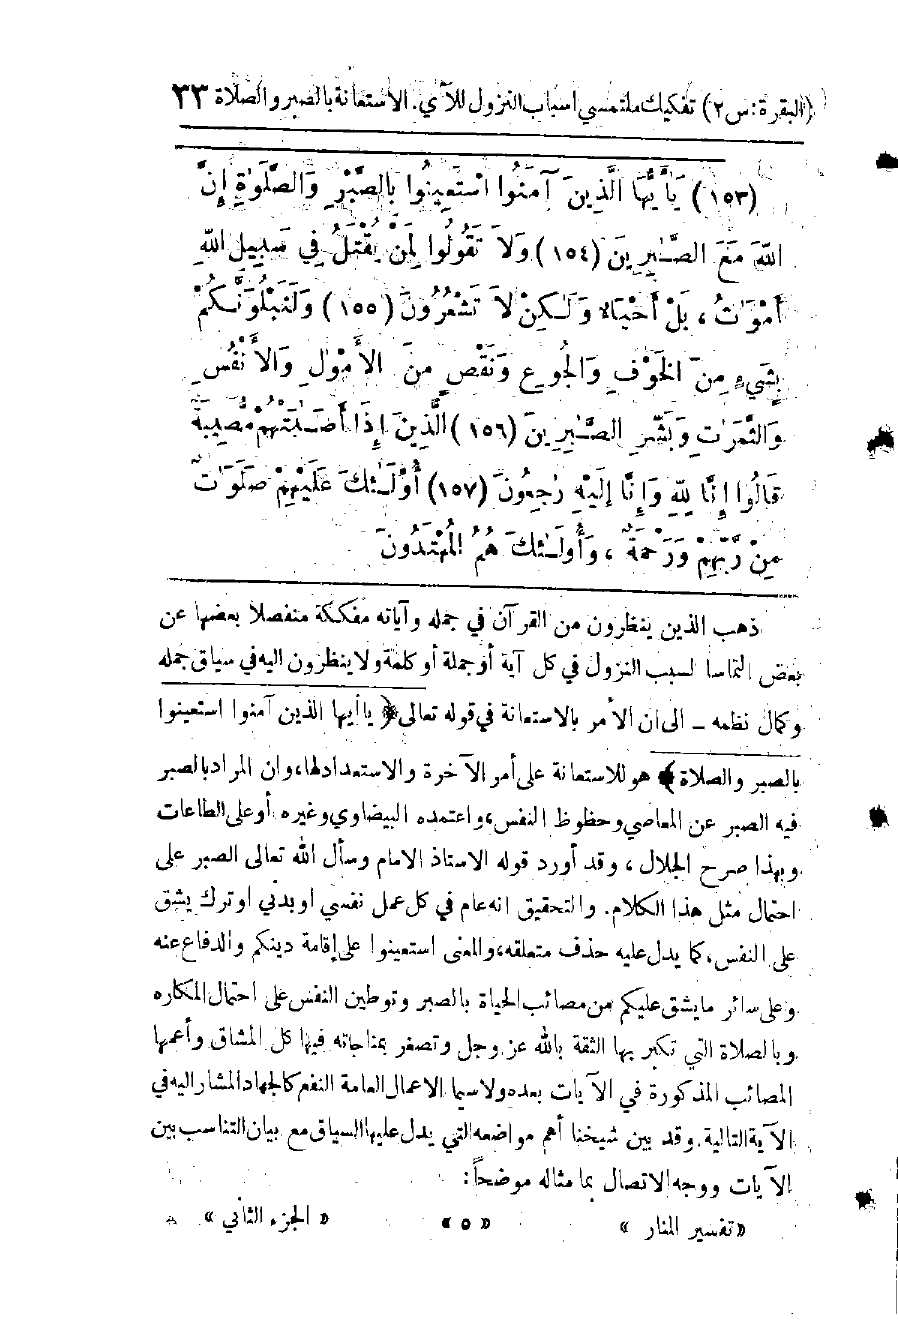 (البقرة: س٢) تفكيك ملتمسي اسباب النزول للآي. الاستعانة بالصبر والصلاة ٣٣
(١٥٣) يَأَيُّهَا الَّذِينَ آمَنُوا اسْتَعِينُوا بِالصَّبْرِ وَالصَّلَوٰةِ إِنَّ
اللهَ مَعَ الصَّـٰبِرِينَ (١٥٤) وَلاَ تَقُولُوا لِمَنْ يُقْتَلُ فِي سَبِيلِ اللهِ
أَمْوَٰتٌ ، بَلْ أَحْيَاءٌ وَلَـٰكِنْ لاَ تَشْعُرُونَ (١٥٥) وَلَنَبْلُوَنَّـكُمْ
بِشَيْءٍ مِنَ الخَوْفِ وَالجُوعِ وَنَقْصٍ مِنَ الأَمْوٰلِ وَالأَنْفُسِ
وَالثَّمَرٰتِ وَبَشِّرِ الصَّـٰبِرِينَ (١٥٦) الَّذِينَ إِذَا أَصَـٰبَتْهُمْ مُصِيبَةٌ
قَالُوا إِنَّا لِلهِ وَإِنَّا إِلَيْهِ رٰجِعُونَ (١٥٧) أُوْلَـٰئِكَ عَلَيْهِمْ صَلَوَٰتٌ
مِنْ رَبِّهِمْ وَرَحْمَةٌ ، وَأُولَـٰئِكَ هُمُ المُهْتَدُونَ
ذهب الذين ينظرون من القرآن في جمله وآياته مفككة منفصلا بعضها عن
بعض التماسا لسبب النزول في كل آية أو جملة أو كلمة ولا ينظرون اليه في سياق جمله
وكمال نظمه ـ الى ان الأمر بالاستعانة في قوله تعالى ﴿ ياأيها الذين آمنوا استعينوا
بالصبر والصلاة ﴾ هو للاستعانة على أمر الآخرة والاستعداد لها، وان المراد بالصبر
فيه الصبر عن المعاصي وحظوظ النفس، واعتمده البيضاوي وغيره أو على الطاعات
وبهذا صرح الجلال ، وقد أورد قوله الاستاذ الامام وسأل الله تعالى الصبر على
احتمال مثل هذا الكلام. والتحقيق انه عام في كل عمل نفسي او بدني او ترك يشق
على النفس، كما يدل عليه حذف متعلقه، والمعنى استعينوا على إقامة دينكم والدفاع عنه
وعلى سائر ما يشق عليكم من مصائب الحياة بالصبر وتوطين النفس على احتمال المكاره
وبالصلاة التي تكبر بها الثقة بالله عز وجل وتصغر بمناجاته فيها كل المشاق وأعمها
المصائب المذكورة في الآيات بعده ولا سيما الاعمال العامة النفع كالجهاد المشار اليه في
الآية التالية. وقد بين شيخنا أهم مواضعه التي يدل عليها السياق مع بيان التناسب بين
الآيات ووجه الاتصال بما مثاله موضحاً:
«تفسير المنار » « ٥ » « الجزء الثاني »